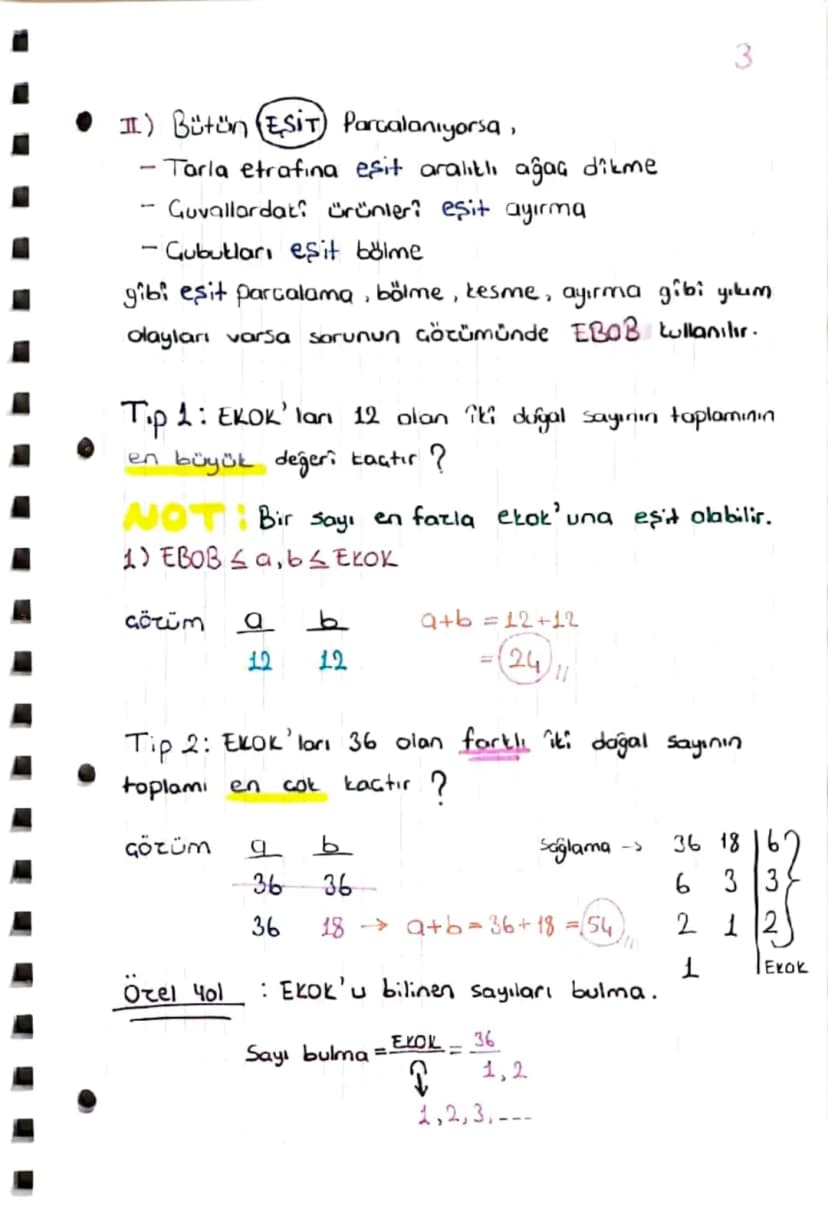 3
II) Bütün EŞİT Parçalanıyorsa,
- Tarla etrafına eşit aralıklı ağaç dikme
- Çuvallardaki ürünleri eşit ayırma
- Çubukları eşit bölme
gibi eşit parçalama, bölme, kesme, ayırma gibi yıkım
olayları varsa sorunun çözümünde EBOB kullanılır.
Tip 1: EKOK'ları 12 olan iki doğal sayının toplamının
en büyük değeri kaçtır?
NOT: Bir sayı en fazla ekok'una eşit olabilir.
1) EBOB ≤ a,b ≤ EKOK
çözüm a b a+b = 12+12
12 12 = 24 //
Tip 2: EKOK'ları 36 olan farklı iki doğal sayının
toplamı en çok kaçtır?
çözüm a b Sağlama -> 36 18 | 6
36 36 6 3 | 3
36 18 → a+b = 36+18 = 54 // 2 1 | 2
1 | EKOK
Özel yol : EKOK'u bilinen sayıları bulma.
Sayı bulma = EKOK = 36
1,2
1,2,3,---